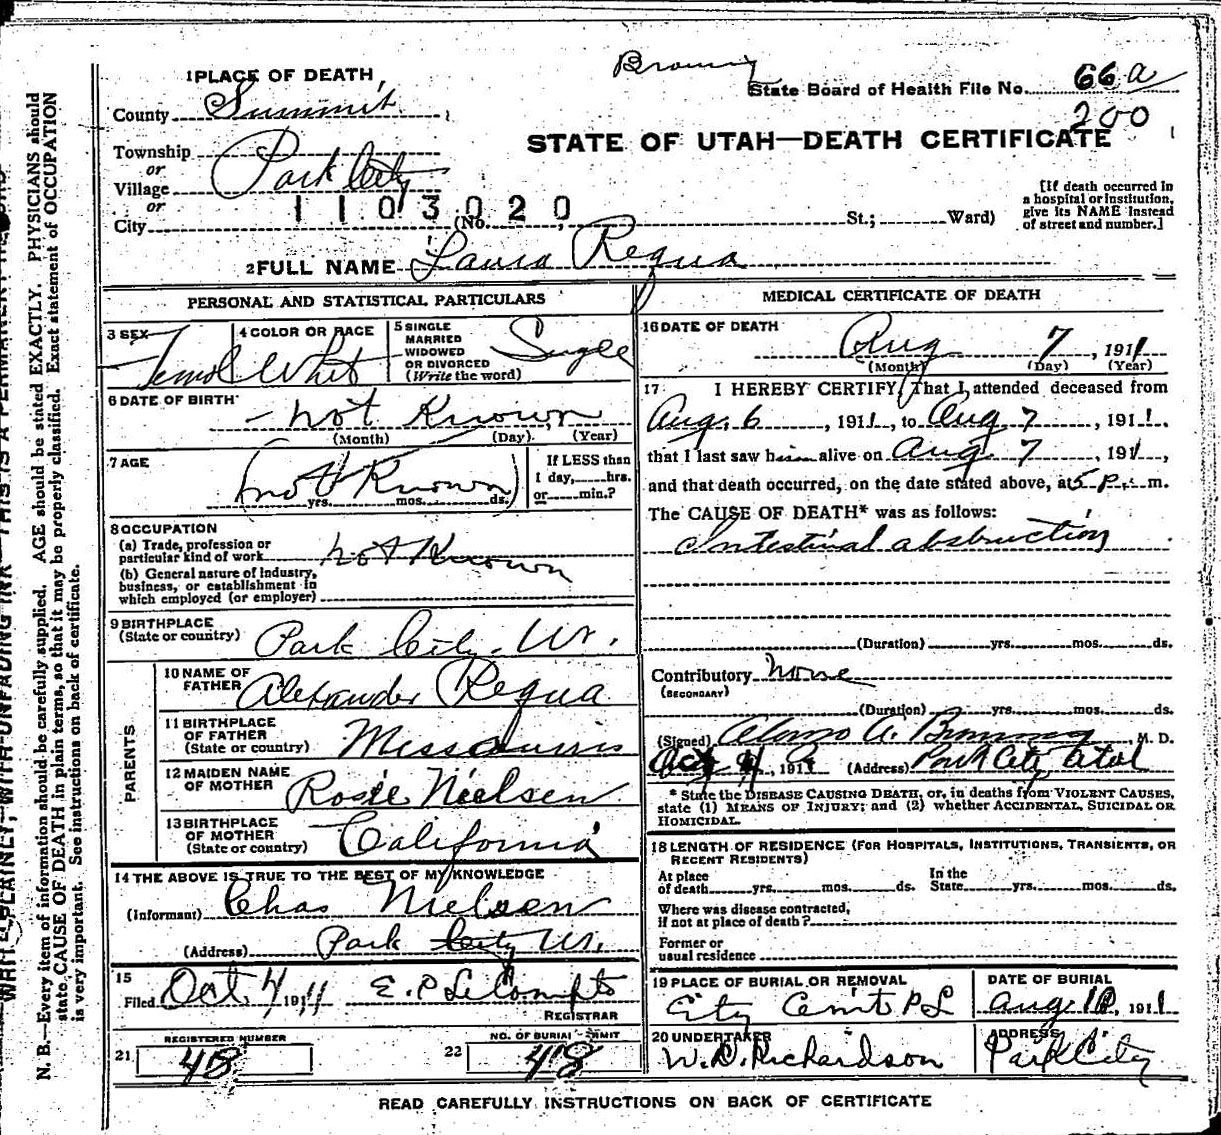 Browning
1 PLACE OF DEATH,
State Board of Health File No. 66 a
County Summit
200
STATE OF UTAH—DEATH CERTIFICATE
Township
or
Village Park City
or
1103020
City (No. St.; Ward)
[If death occurred in
a hospital or institution,
give its NAME instead
of street and number.]
2 FULL NAME Laura Requa
PERSONAL AND STATISTICAL PARTICULARS
3 SEX Femal
4 COLOR OR RACE Whit
5 SINGLE
MARRIED
WIDOWED
OR DIVORCED
(Write the word) Single
6 DATE OF BIRTH
not Known
(Month) (Day) (Year)
7 AGE
(not Known)
yrs. mos. ds.
If LESS than
1 day, hrs.
or min.?
8 OCCUPATION
(a) Trade, profession or
particular kind of work not Known
(b) General nature of industry,
business, or establishment in
which employed (or employer)
9 BIRTHPLACE
(State or country) Park City, Ut.
PARENTS
10 NAME OF
FATHER Alexander Requa
11 BIRTHPLACE
OF FATHER
(State or country) Missouris
12 MAIDEN NAME
OF MOTHER Rosie Nielsen
13 BIRTHPLACE
OF MOTHER
(State or country) California
14 THE ABOVE IS TRUE TO THE BEST OF MY KNOWLEDGE
(Informant) Chas Nielsen
(Address) Park City Ut.
15
Filed Oct 4 1911 E. P. LeCompte
REGISTRAR
REGISTERED NUMBER
21 48
NO. OF BURIAL PERMIT
22 48
MEDICAL CERTIFICATE OF DEATH
16 DATE OF DEATH
Aug 7, 1911
(Month) (Day) (Year)
17 I HEREBY CERTIFY, That I attended deceased from
Aug. 6, 1911, to Aug 7, 1911.
that I last saw h alive on Aug 7, 1911,
and that death occurred, on the date stated above, at 5 P. m.
The CAUSE OF DEATH* was as follows:
Intestinal abstruction
(Duration) yrs. mos. ds.
Contributory None
(SECONDARY)
(Duration) yrs. mos. ds.
(Signed) A. Browning, M. D.
Oct 4, 1911 (Address) Park City Utah
* State the DISEASE CAUSING DEATH, or, in deaths from VIOLENT CAUSES,
state (1) MEANS OF INJURY; and (2) whether ACCIDENTAL, SUICIDAL OR
HOMICIDAL.
18 LENGTH OF RESIDENCE (FOR HOSPITALS, INSTITUTIONS, TRANSIENTS, OR
RECENT RESIDENTS)
At place
of death yrs. mos. ds.
In the
State yrs. mos. ds.
Where was disease contracted,
if not at place of death?
Former or
usual residence
19 PLACE OF BURIAL OR REMOVAL
City
DATE OF BURIAL
Aug. 10, 1911
20 UNDERTAKER
W. D. Richardson
ADDRESS
Park City
READ CAREFULLY INSTRUCTIONS ON BACK OF CERTIFICATE
WRITE PLAINLY, WITH UNFADING INK—THIS IS A PERMANENT
N. B.—Every item of information should be carefully supplied. AGE should be stated EXACTLY. PHYSICIANS should
state CAUSE OF DEATH in plain terms, so that it may be properly classified. Exact statement of OCCUPATION
is very important. See instructions on back of certificate.